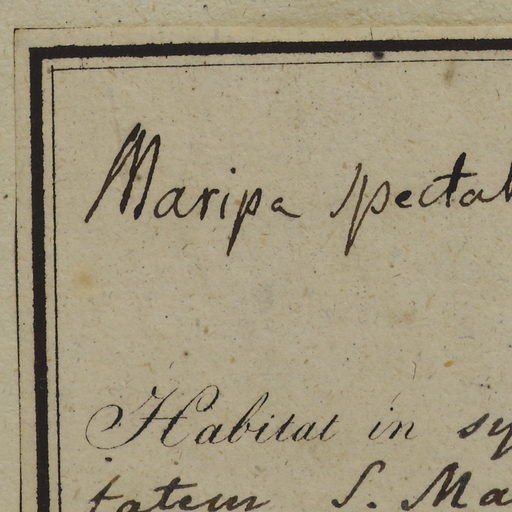 Maripa spectab
Habitat in sy
tatem S. Ma